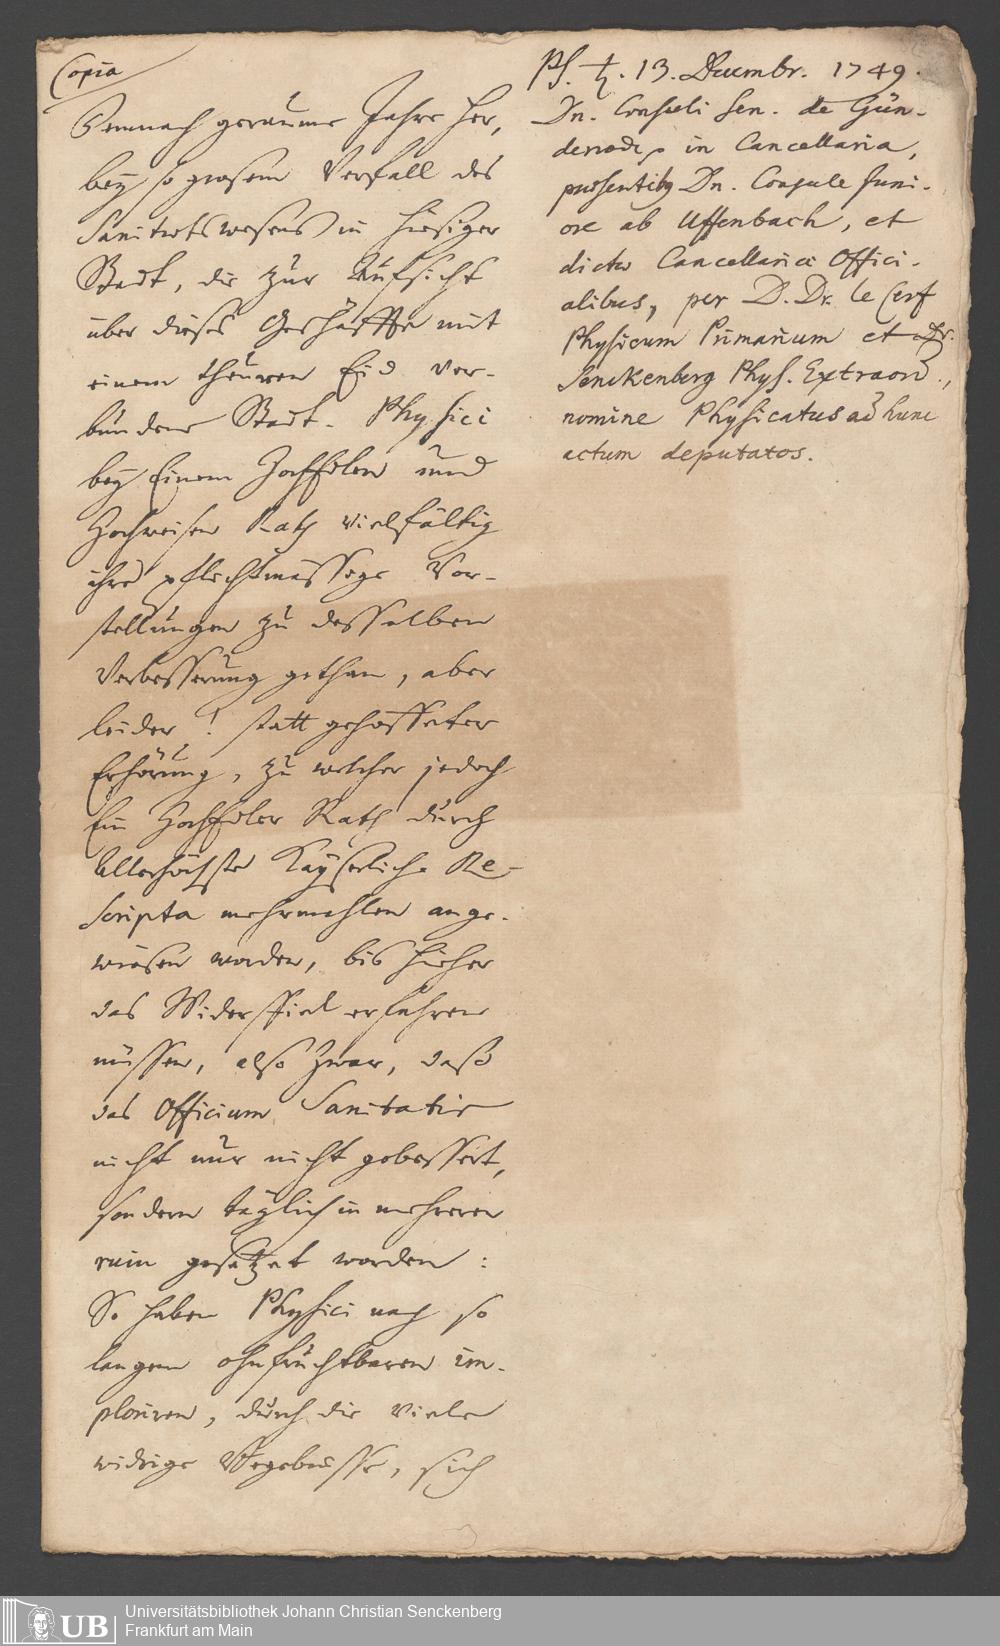 Copia
Demnach geraume Jahre her,
bey so grosem Verfall des
Sanitätswesens in hiesiger
Stadt, die zur Aufsicht
über dieses Geschäffte mit
einem theuren Eid ver-
bundene Stadt-Physici
bey Einem HochEdlen und
Hochweisen Rath vielfältig
ihre pflichtmässige Vor-
stellungen zu desselben
Verbesserung gethan, aber
leider! statt gehoffeter
Erhörung, zu welcher jedoch
Ein HochEdler Rath durch
Allerhöchste Kayserliche Re-
scripta mehrmahlen ange-
wiesen worden, bis hieher
das Widerspiel erfahren
müssen, also zwar, daß
das Officium Sanitatis
nicht nur nicht gebessert,
sondern täglich in mehreren
ruin gesetzet worden:
So haben Physici nach so
langem ohnfruchtbaren im-
ploriren, durch die viele
widrige Begebnisse, sich
Ps. ♄. 13. Decembr. 1749.
Dn. Consuli Sen. de Gün-
derode, in Cancellaria,
praesentibus Dn. Consule Juni-
ore ab Uffenbach, et
dictae Cancellariae Offici-
alibus, per D. Dr. le Cerf
Physicum Primarium et Dr.
Senckenberg Phys. Extraord.,
nomine Physicatus ad hunc
actum deputatos.
UB
Universitätsbibliothek Johann Christian Senckenberg
Frankfurt am Main